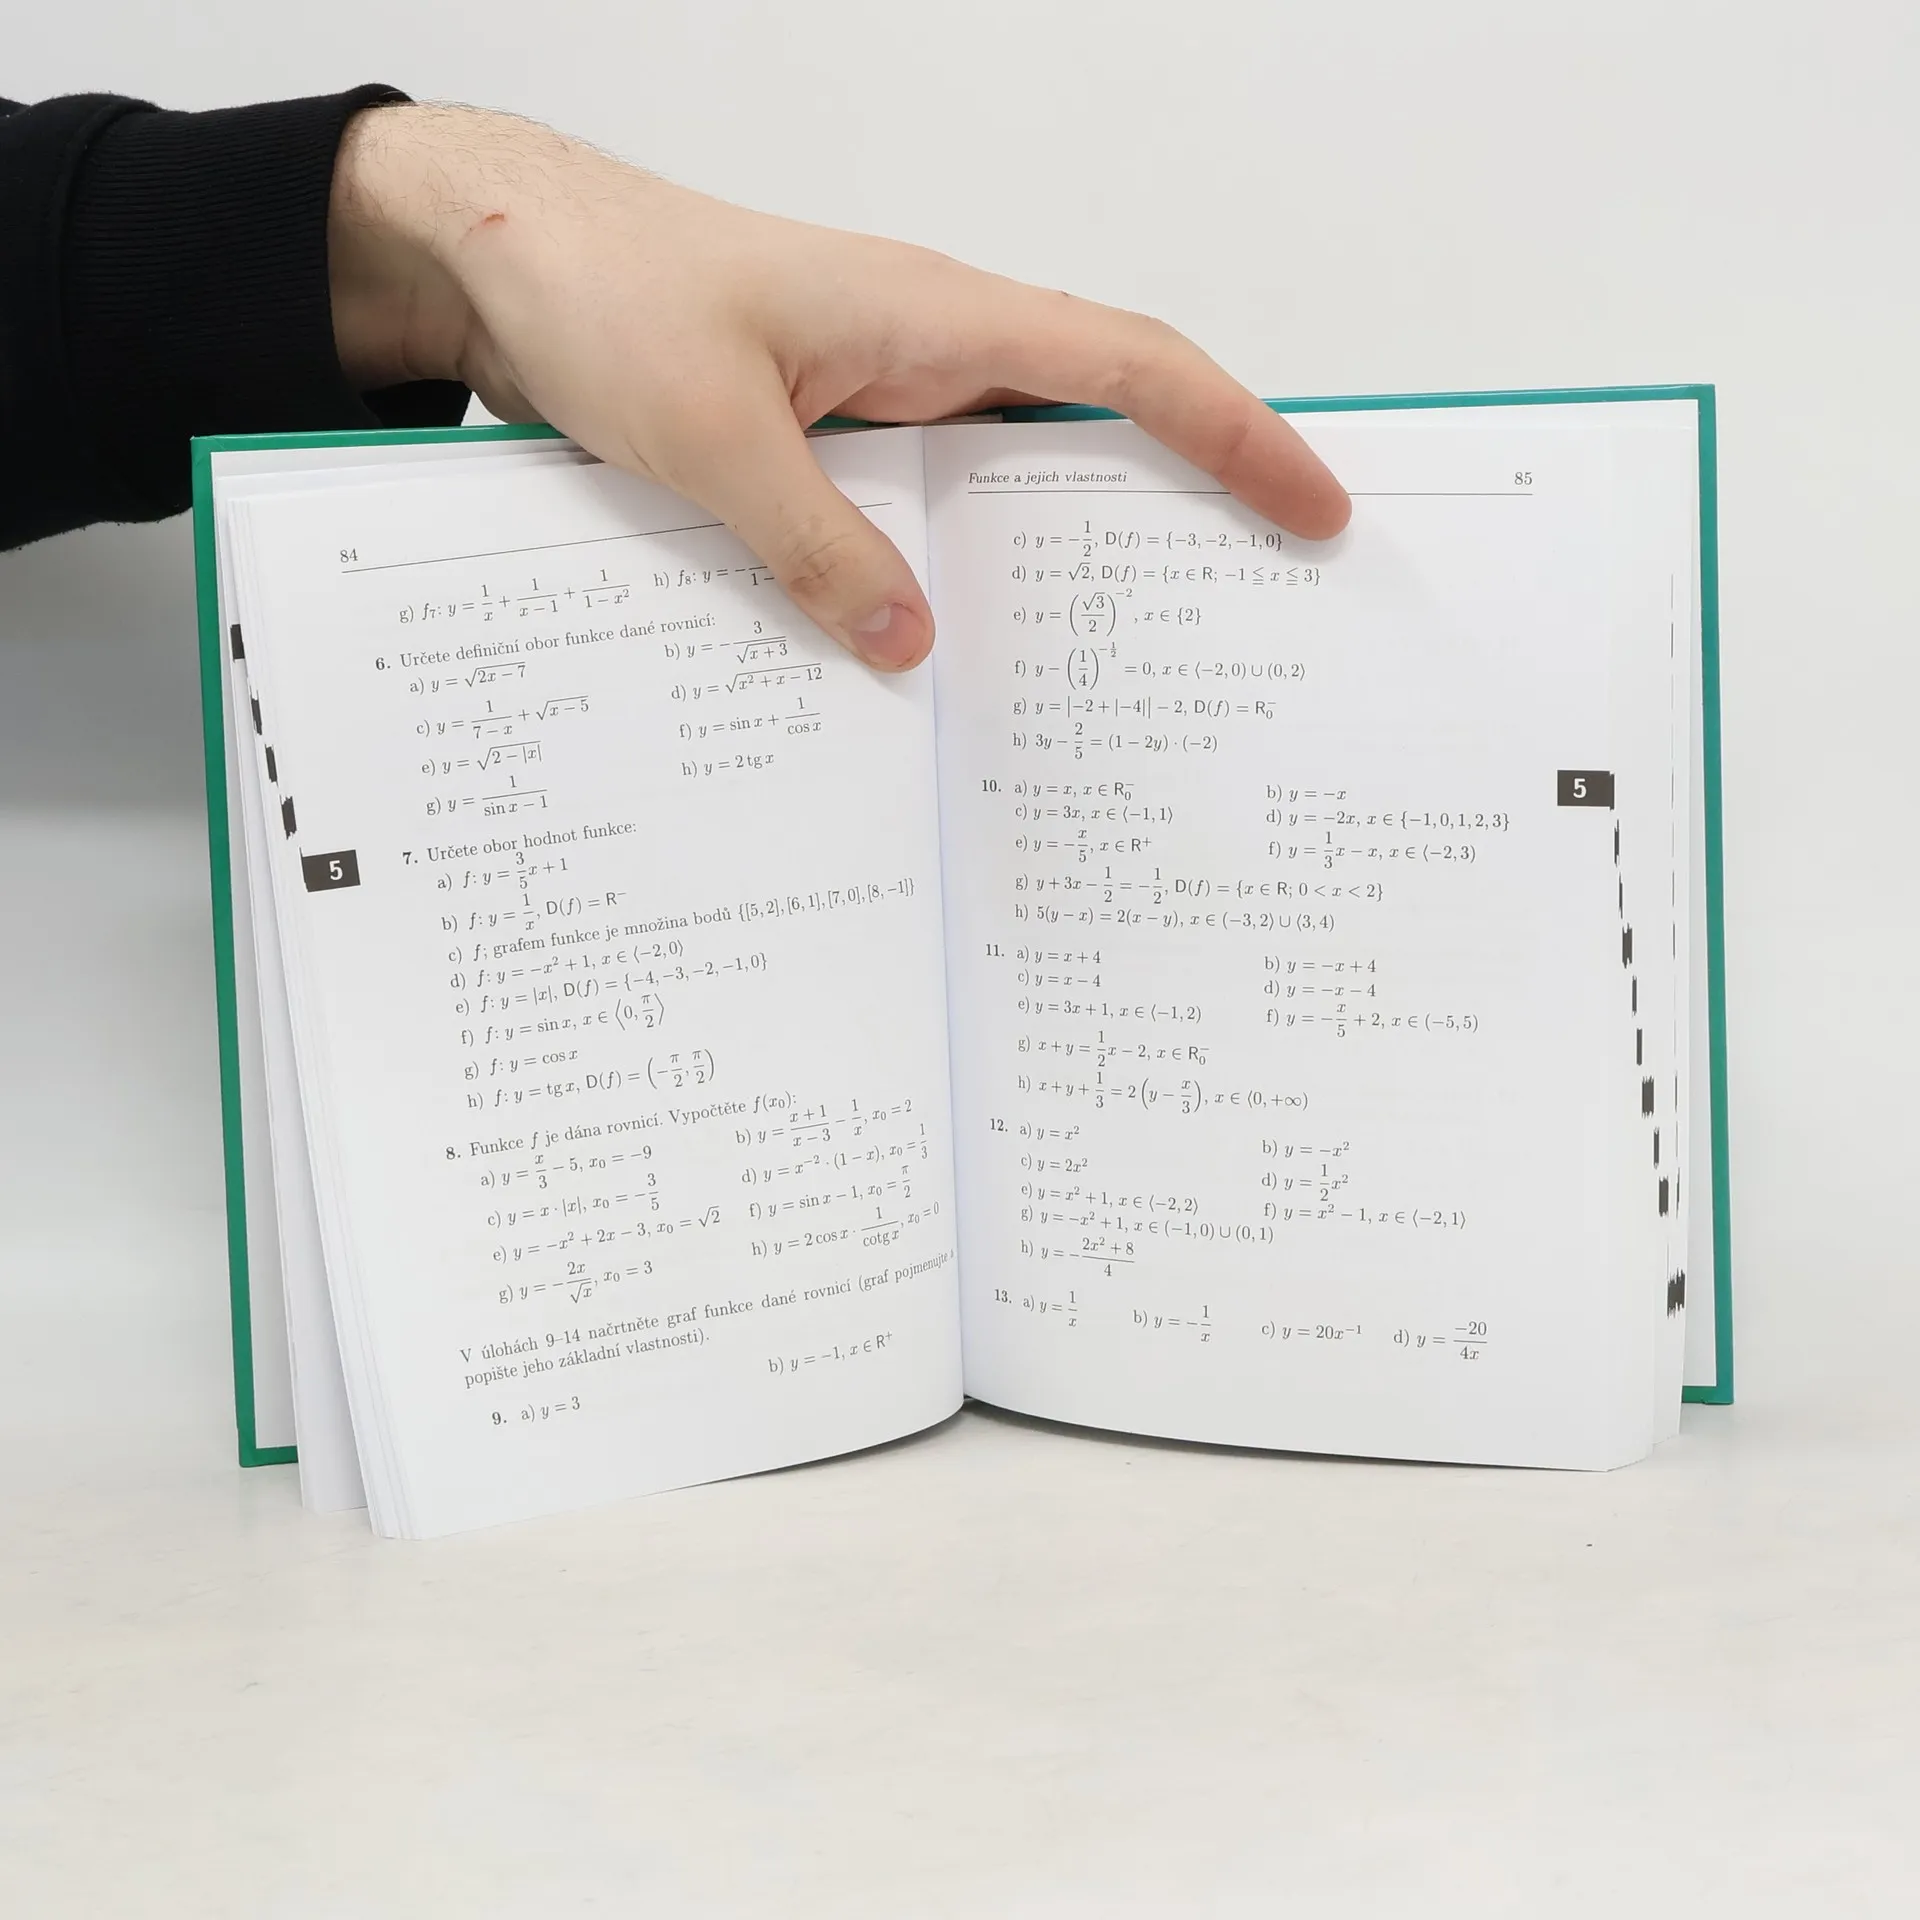 84
g) f₇: y = 1/x + 1/(x − 1) + 1/(1 − x²) h) f₈: y = −
6. Určete definiční obor funkce dané rovnicí:
a) y = √(2x − 7) b) y = −3/√(x + 3)
c) y = 1/(7 − x) + √(x − 5) d) y = √(x² + x − 12)
e) y = √(2 − |x|) f) y = sin x + 1/cos x
g) y = 1/(sin x − 1) h) y = 2 tg x
7. Určete obor hodnot funkce:
5
a) f: y = 3/5 x + 1
b) f: y = 1/x, D(f) = R⁻
c) f; grafem funkce je množina bodů {[5, 2], [6, 1], [7, 0], [8, −1]}
d) f: y = −x² + 1, x ∈ ⟨−2, 0⟩
e) f: y = |x|, D(f) = {−4, −3, −2, −1, 0}
f) f: y = sin x, x ∈ ⟨0, π/2⟩
g) f: y = cos x
h) f: y = tg x, D(f) = (−π/2, π/2)
8. Funkce f je dána rovnicí. Vypočtěte f(x₀):
a) y = x/3 − 5, x₀ = −9 b) y = (x + 1)/(x − 3) − 1/x, x₀ = 2
c) y = x · |x|, x₀ = −3/5 d) y = x⁻² · (1 − x), x₀ = 1/3
e) y = −x² + 2x − 3, x₀ = √2 f) y = sin x − 1, x₀ = π/2
g) y = −2x/√x, x₀ = 3 h) y = 2 cos x · 1/cotg x, x₀ = 0
V úlohách 9–14 načrtněte graf funkce dané rovnicí (graf pojmenujte a
popište jeho základní vlastnosti).
9. a) y = 3 b) y = −1, x ∈ R⁺
Funkce a jejich vlastnosti 85
c) y = −1/2, D(f) = {−3, −2, −1, 0}
d) y = √2, D(f) = {x ∈ R; −1 ≦ x ≦ 3}
e) y = (√3/2)⁻², x ∈ {2}
f) y − (1/4)^(−1/2) = 0, x ∈ ⟨−2, 0) ∪ (0, 2⟩
g) y = |−2 + |−4|| − 2, D(f) = R₀⁻
h) 3y − 2/5 = (1 − 2y) · (−2)
10. a) y = x, x ∈ R₀⁻ b) y = −x
c) y = 3x, x ∈ ⟨−1, 1⟩ d) y = −2x, x ∈ {−1, 0, 1, 2, 3}
e) y = −x/5, x ∈ R⁺ f) y = 1/3 x − x, x ∈ ⟨−2, 3)
g) y + 3x − 1/2 = −1/2, D(f) = {x ∈ R; 0 < x < 2}
h) 5(y − x) = 2(x − y), x ∈ (−3, 2) ∪ ⟨3, 4)
5
11. a) y = x + 4 b) y = −x + 4
c) y = x − 4 d) y = −x − 4
e) y = 3x + 1, x ∈ ⟨−1, 2) f) y = −x/5 + 2, x ∈ (−5, 5)
g) x + y = 1/2 x − 2, x ∈ R₀⁻
h) x + y + 1/3 = 2 (y − x/3), x ∈ ⟨0, +∞)
12. a) y = x² b) y = −x²
c) y = 2x² d) y = 1/2 x²
e) y = x² + 1, x ∈ ⟨−2, 2⟩ f) y = x² − 1, x ∈ ⟨−2, 1⟩
g) y = −x² + 1, x ∈ (−1, 0) ∪ (0, 1)
h) y = −(2x² + 8)/4
13. a) y = 1/x b) y = −1/x c) y = 20x⁻¹ d) y = −20/4x